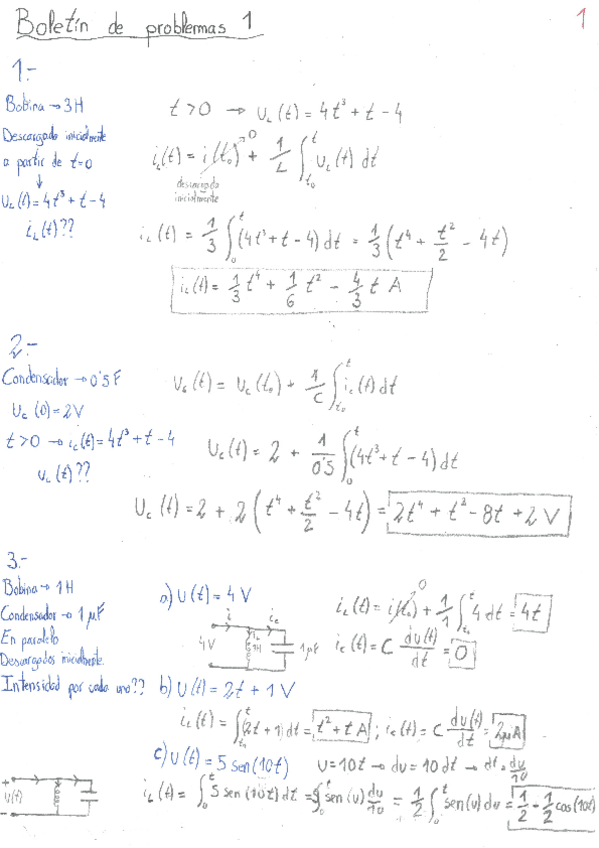 Boletín de problemas 1
1
1.-
Bobina → 3H
Descargada inicialmente
a partir de t=0
↓
u_L(t)=4t³+t-4
i_L(t)??
t>0 → u_L(t)=4t³+t-4
i_L(t) = i(t₀) → 0 + 1/L ∫_{t₀}^{t} u_L(t) dt
descargada
inicialmente
i_L(t) = 1/3 ∫_0^t (4t³+t-4) dt = 1/3 (t⁴ + t²/2 - 4t)
i_L(t) = 1/3 t⁴ + 1/6 t² - 4/3 t A
2.-
Condensador → 0'5 F
u_c(0)=2V
t>0 → i_c(t)=4t³+t-4
u_L(t)??
u_c(t) = u_c(t₀) + 1/C ∫_{t₀}^{t} i_c(t) dt
u_c(t) = 2 + 1/0'5 ∫_0^t (4t³+t-4) dt
u_c(t) = 2 + 2 (t⁴ + t²/2 - 4t) = 2t⁴ + t² - 8t + 2 V
3.-
Bobina → 1H
Condensador → 1 μF
En paralelo
Descargados inicialmente
Intensidad por cada uno??
a) u(t) = 4 V
i i_c
4V 1H 1μF
i_L(t) = i(t₀) 0 + 1/1 ∫_{t₀}^{t} 4 dt = 4t
i_c(t) = C du(t)/dt = 0
b) u(t) = 2t + 1 V
i_L(t) = ∫_{t₀}^{t} (2t+1) dt = t² + t A ; i_c(t) = C du(t)/dt = 2μA
c) u(t) = 5 sen(10t) u=10t → du=10 dt → dt = du/10
+ u(t) -
i_L(t) = ∫_0^t 5 sen(10t) dt = 5∫_0^t sen(u) du/10 = 1/2 ∫_0^t sen(u) du = 1/2 - 1/2 cos(10t)